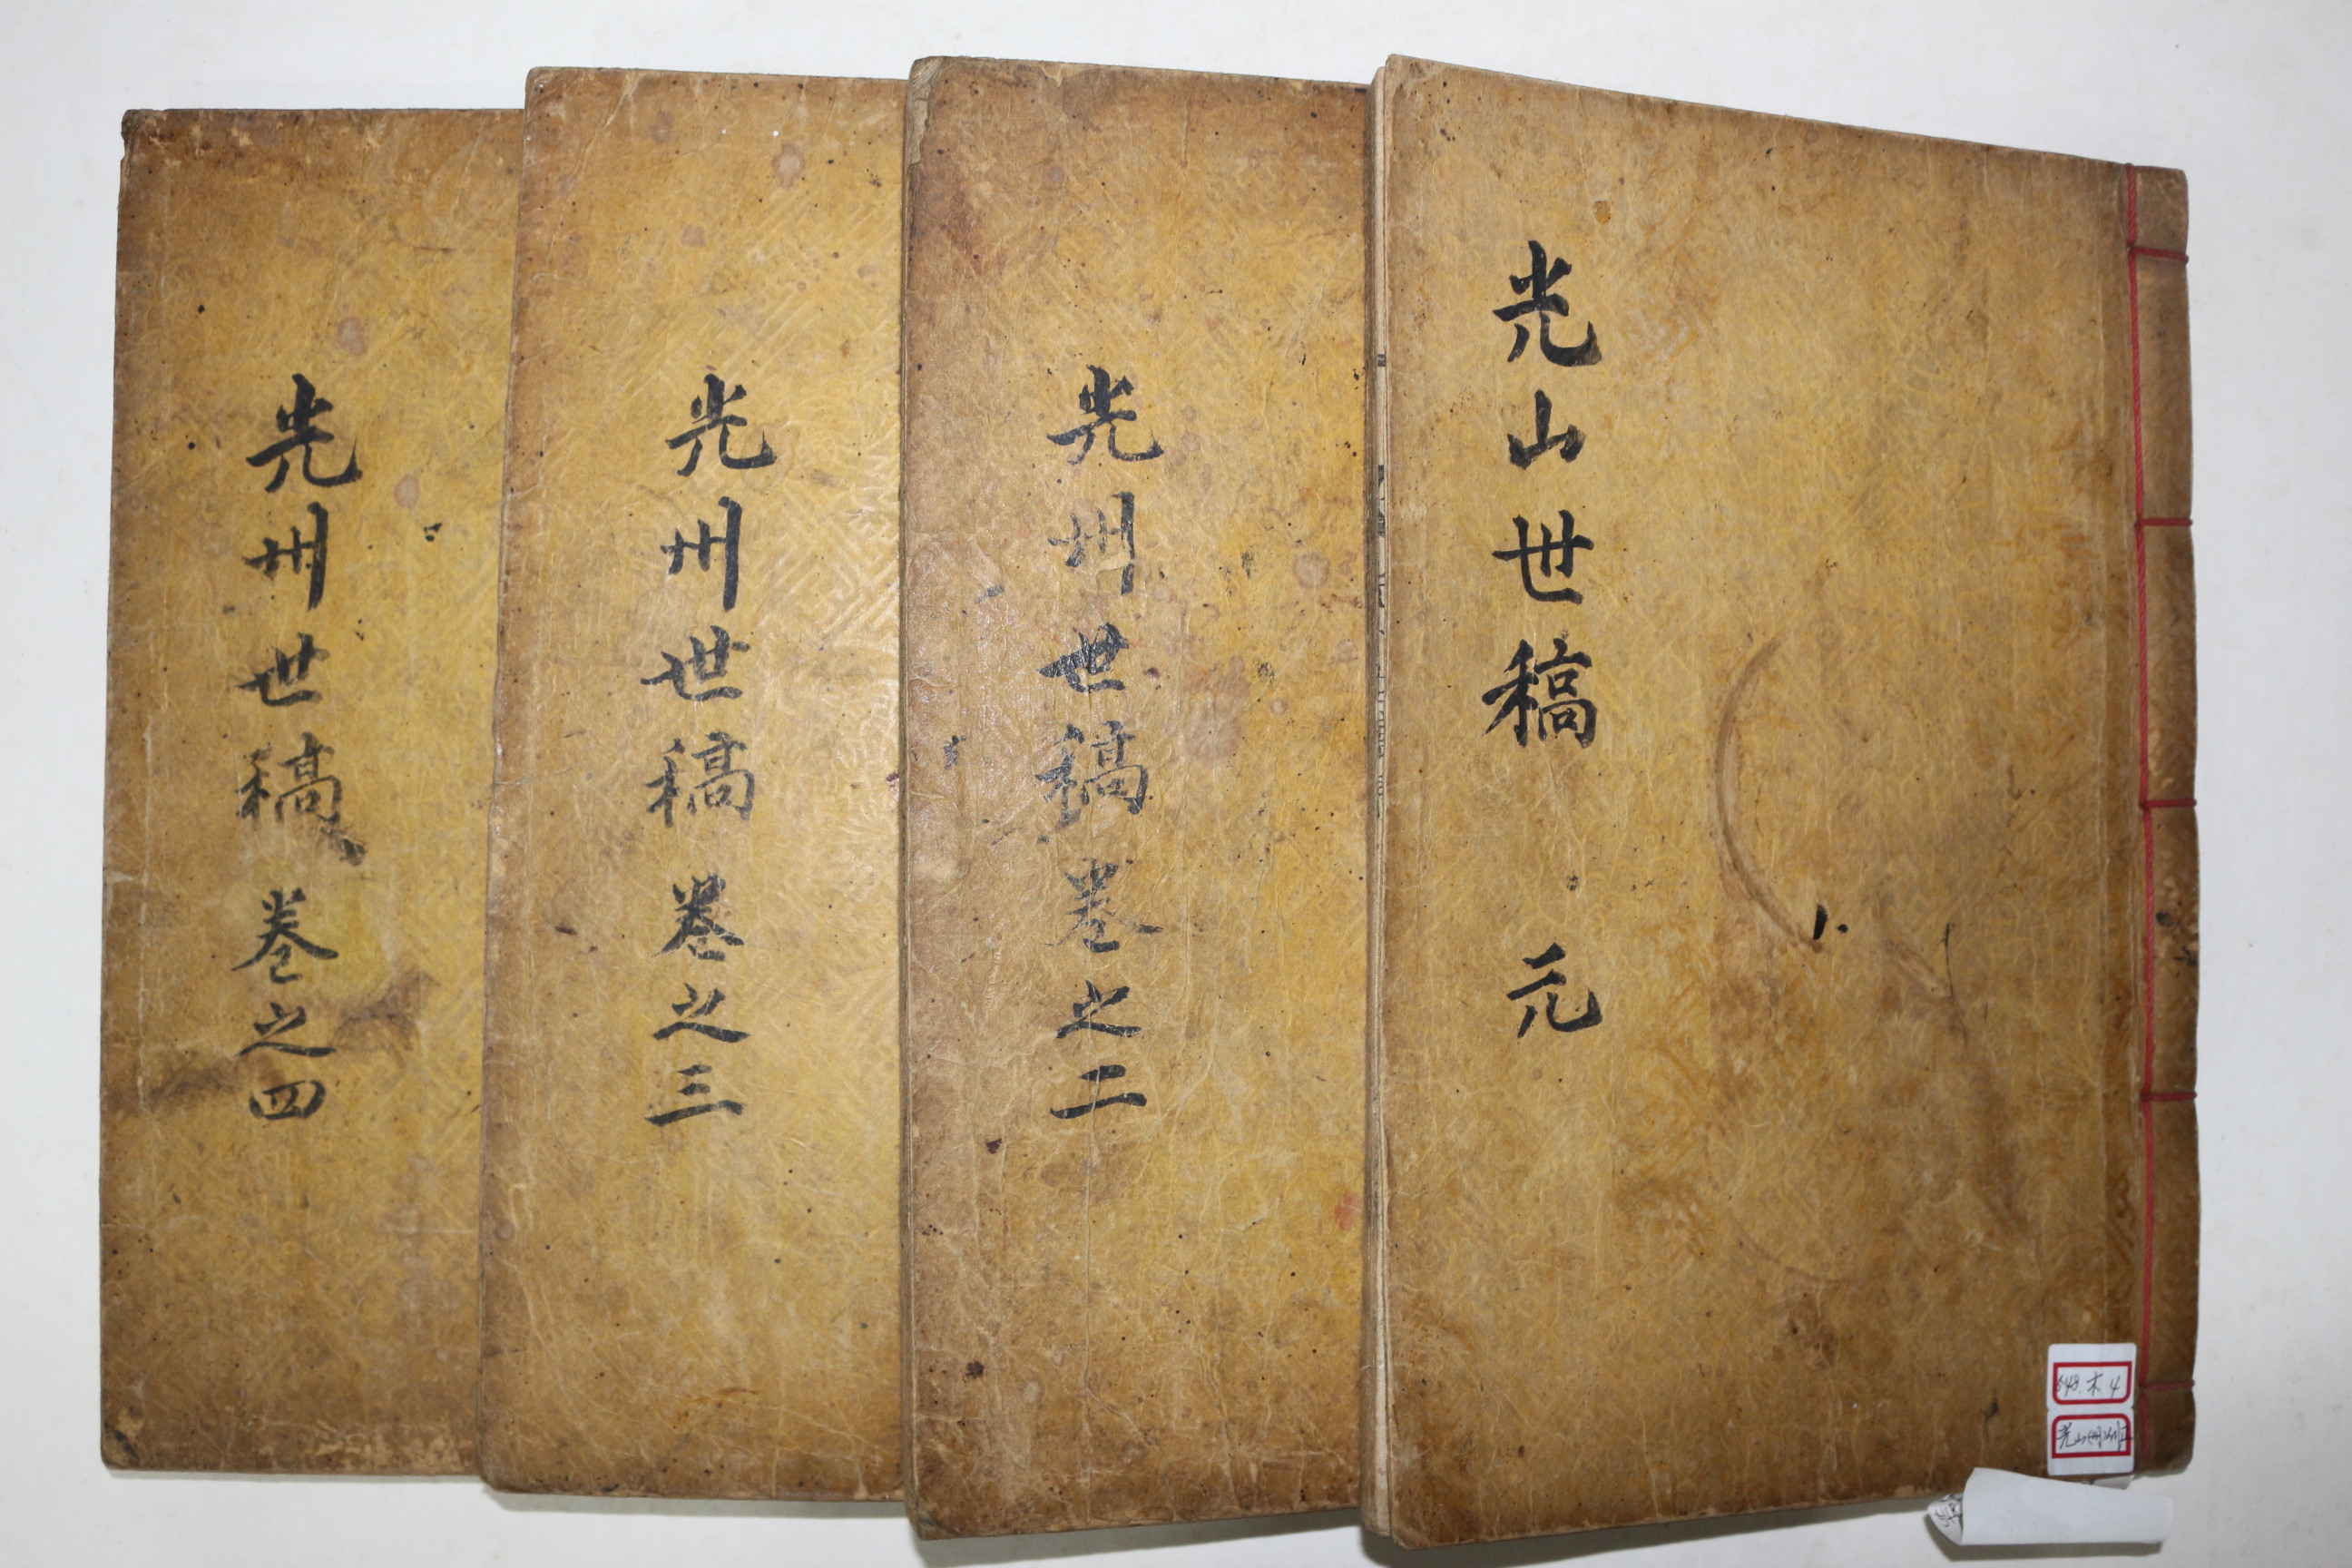 光山世稿 元
光州世稿 卷之二
光州世稿 卷之三
光州世稿 卷之四
648.木4